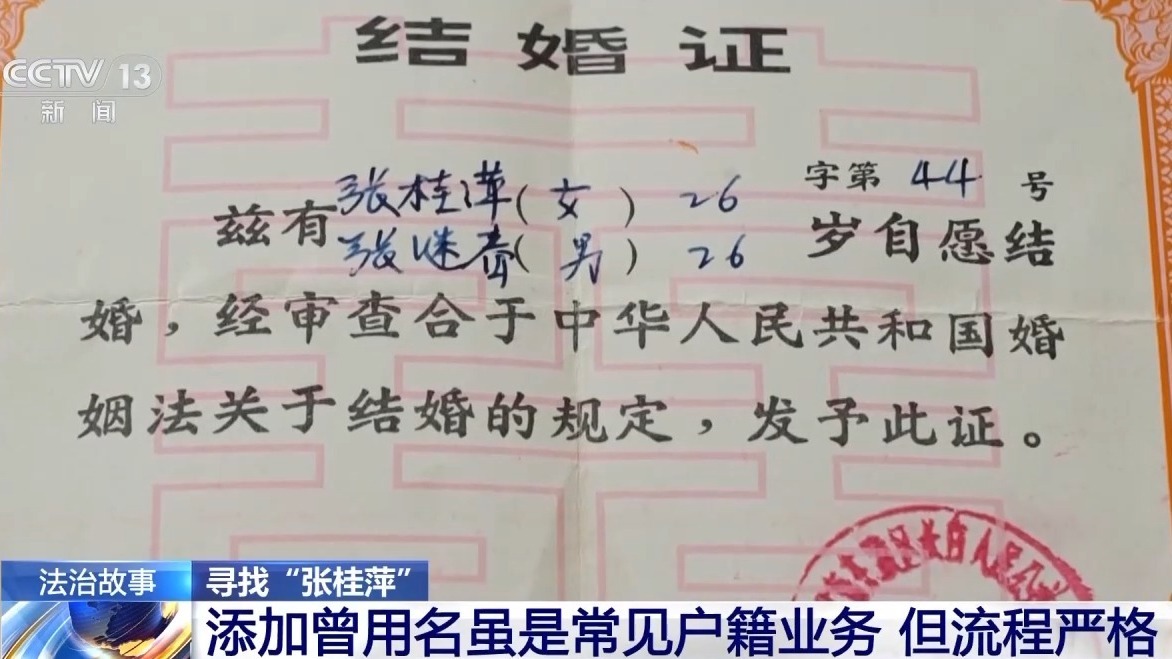 结婚证
CCTV 13
新闻
字第 44 号
兹有 张桂萍(女) 26
张继 (男) 26 岁自愿结
婚，经审查合于中华人民共和国婚
姻法关于结婚的规定，发予此证。
法治故事
寻找“张桂萍”
添加曾用名虽是常见户籍业务 但流程严格